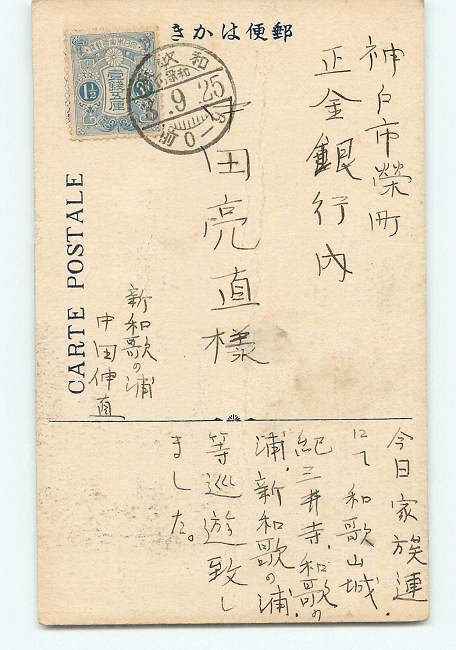 郵便はかき
CARTE POSTALE
神戸市榮町
正金銀行内
中田亮直様
新和歌の浦
中田伸直
今日家族連
にて和歌山城.
紀三井寺.和歌の
浦.新和歌の浦.
等巡遊致し
ました。
壹錢五厘
1½
9.25